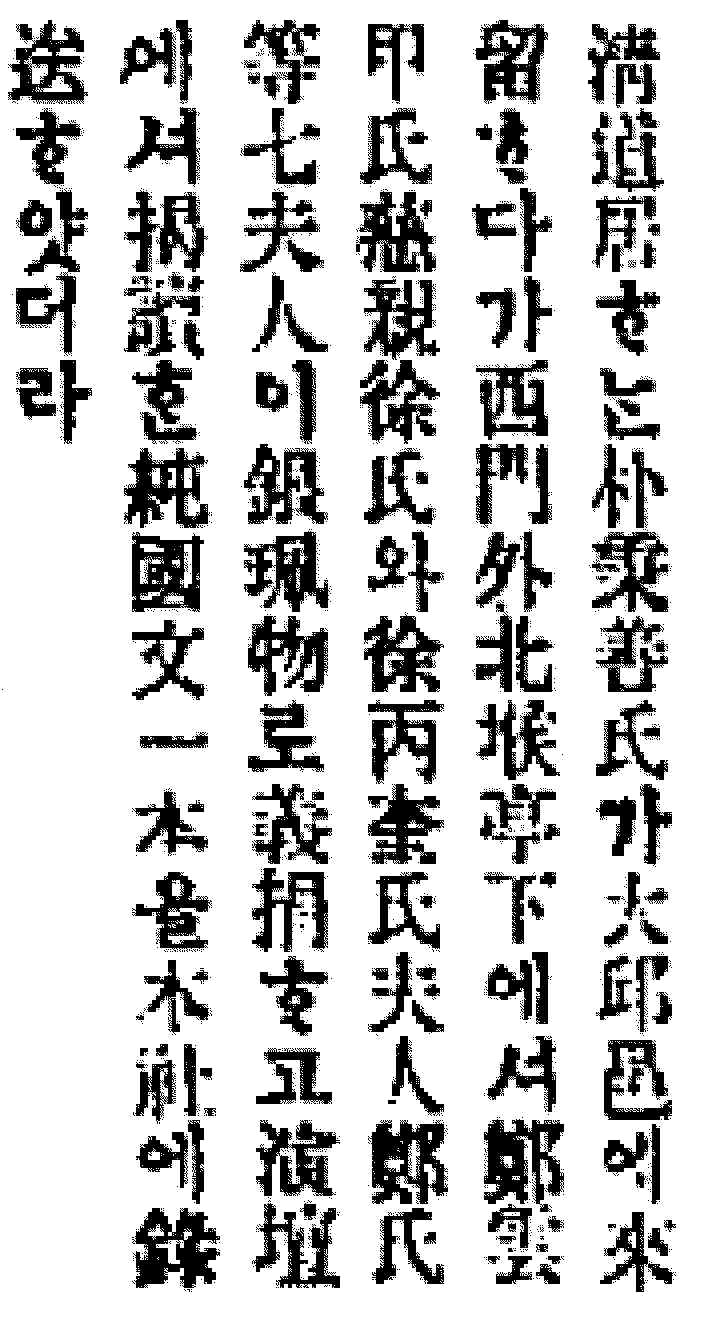 淸道居ᄒᆞᄂᆞᆫ朴秉善氏가大邱邑에來
留ᄒᆞ다가西門外北堠亭下에셔鄭雲
甲氏慈親徐氏와徐丙奎氏夫人鄭氏
等七夫人이銀珮物로義捐ᄒᆞ고演壇
에셔揭讀ᄒᆞᆫ純國文一本을本社에錄
送ᄒᆞ얏더라